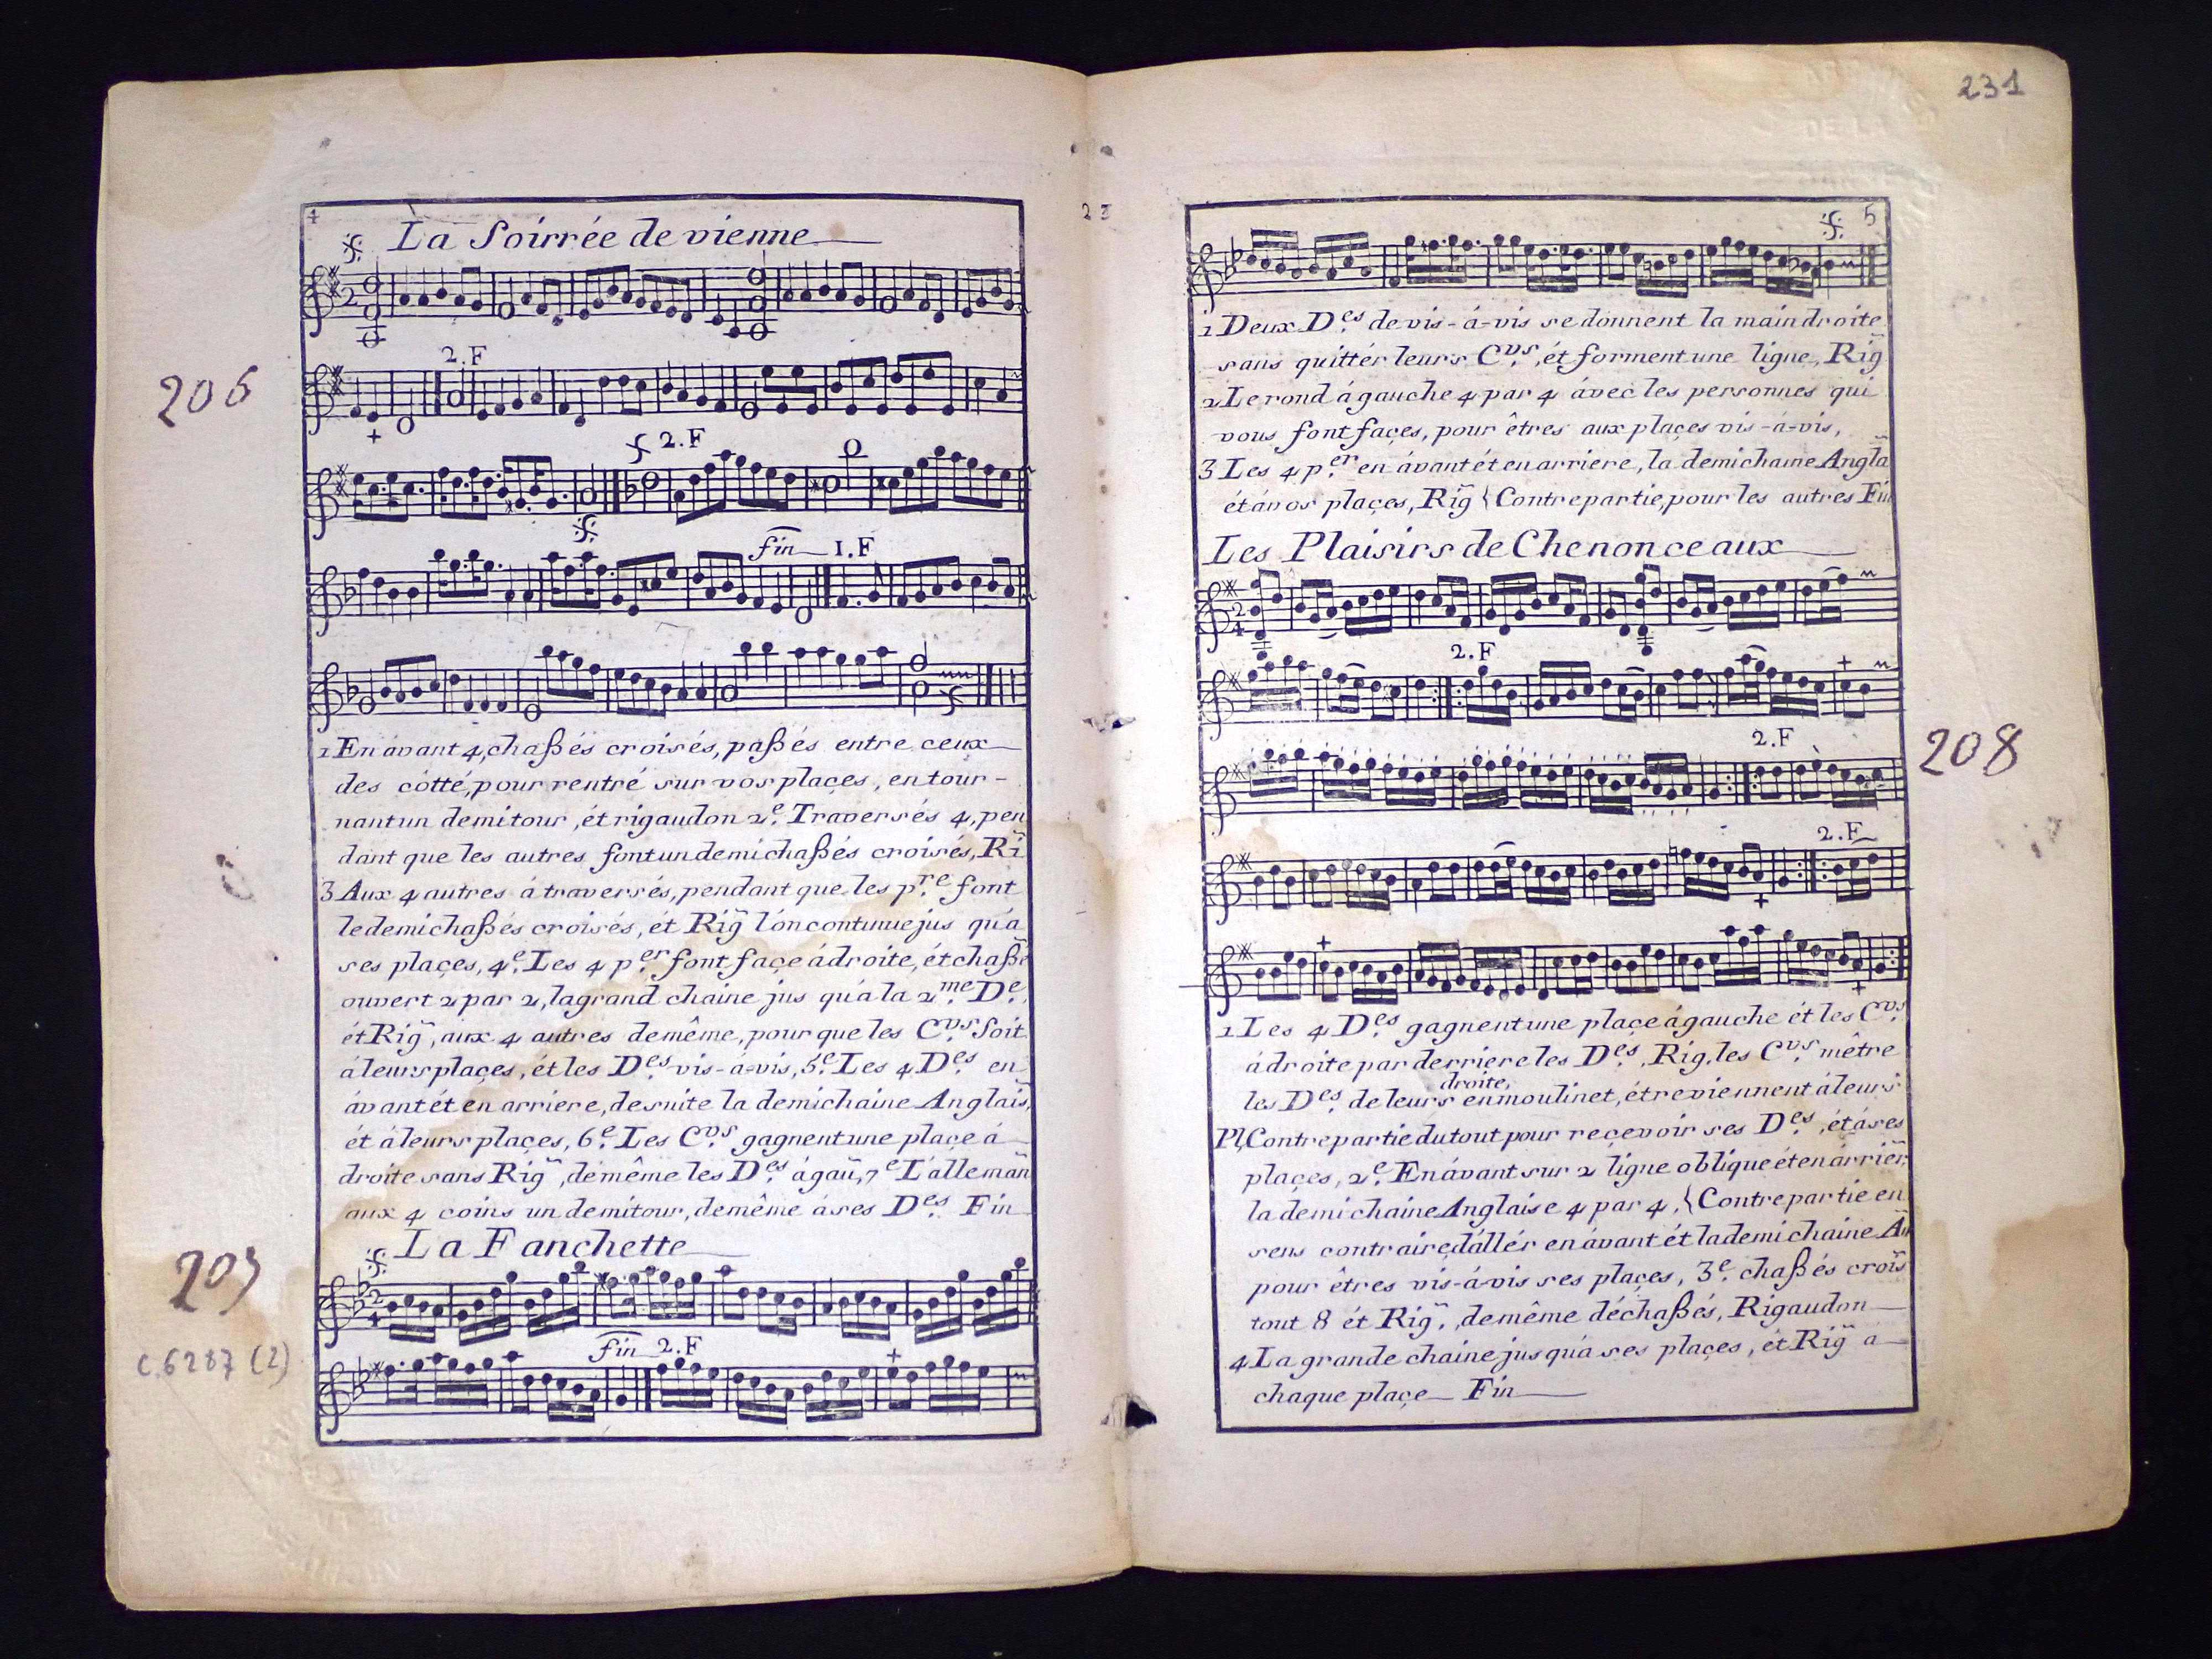 4
La Soirrée de vienne
2.F
206
2.F
fin 1.F
1 En ávant 4, chaßés croisés, paßés entre ceux
des côtté, pour rentré sur vos plaçes, en tour-
nant un demi tour, ét rigaudon 2.e Traversés 4, pen
dant que les autres font un demi chaßés croisés, Ri
3 Aux 4 autres á traversés, pendant que les p.re font
le demi chaßés croisés, ét Rig l'ón continue jus qu'a
ses plaçes, 4.e Les 4 p.er font façe á droite, ét chaßé
ouvert 2 par 2, la grand chaine jus qu'á la 2.me D.e
ét Rig, aux 4 autres de même, pour que les C.vs Soit
á leurs plaçes, ét les D.es vis-á-vis, 5.e Les 4 D.es en
ávant ét en arriere, de suite la demi chaine Anglais,
ét á leurs plaçes, 6.e Les C.vs gagnent une plaçe á
droite sans Rig, de même les D.es á gaũ, 7.e L'alleman
aux 4 coins un demi tour, de même á ses D.es Fin
La Fanchette
207
C.6287 (2)
fin 2.F
23
231
5
1 Deux D.es de vis-á-vis se donnent la main droite
sans quittér leurs C.vs, ét forment une ligne, Rig
2 Le rond á gauche 4 par 4 ávec les personnes qui
vous font façes, pour êtres aux plaçes vis-á-vis,
3 Les 4 p.er en ávant ét en arriere, la demi chaine Angla
ét á nos plaçes, Rig { Contre partie, pour les autres Fin
Les Plaisirs de Chenonceaux
2.F
2.F
208
2.F
1 Les 4 D.es gagnent une plaçe á gauche ét les C.vs
á droite par derriere les D.es, Rig, les C.vs mêtre
droite,
les D.es de leurs en moulinet, ét reviennent á leurs
Pl, Contre partie du tout pour reçevoir ses D.es, ét á ses
plaçes, 2.e En ávant sur 2 ligne oblique ét en árrier,
la demi chaine Anglaise 4 par 4, { Contre partie en
sens contraire, d'állér en ávant ét la demi chaine An
pour êtres vis-á-vis ses plaçes, 3.e chaßés crois
tout 8 ét Rig, de même déchaßés, Rigaudon
4 La grande chaine jus qu'á ses plaçes, ét Rig á
chaque plaçe Fin